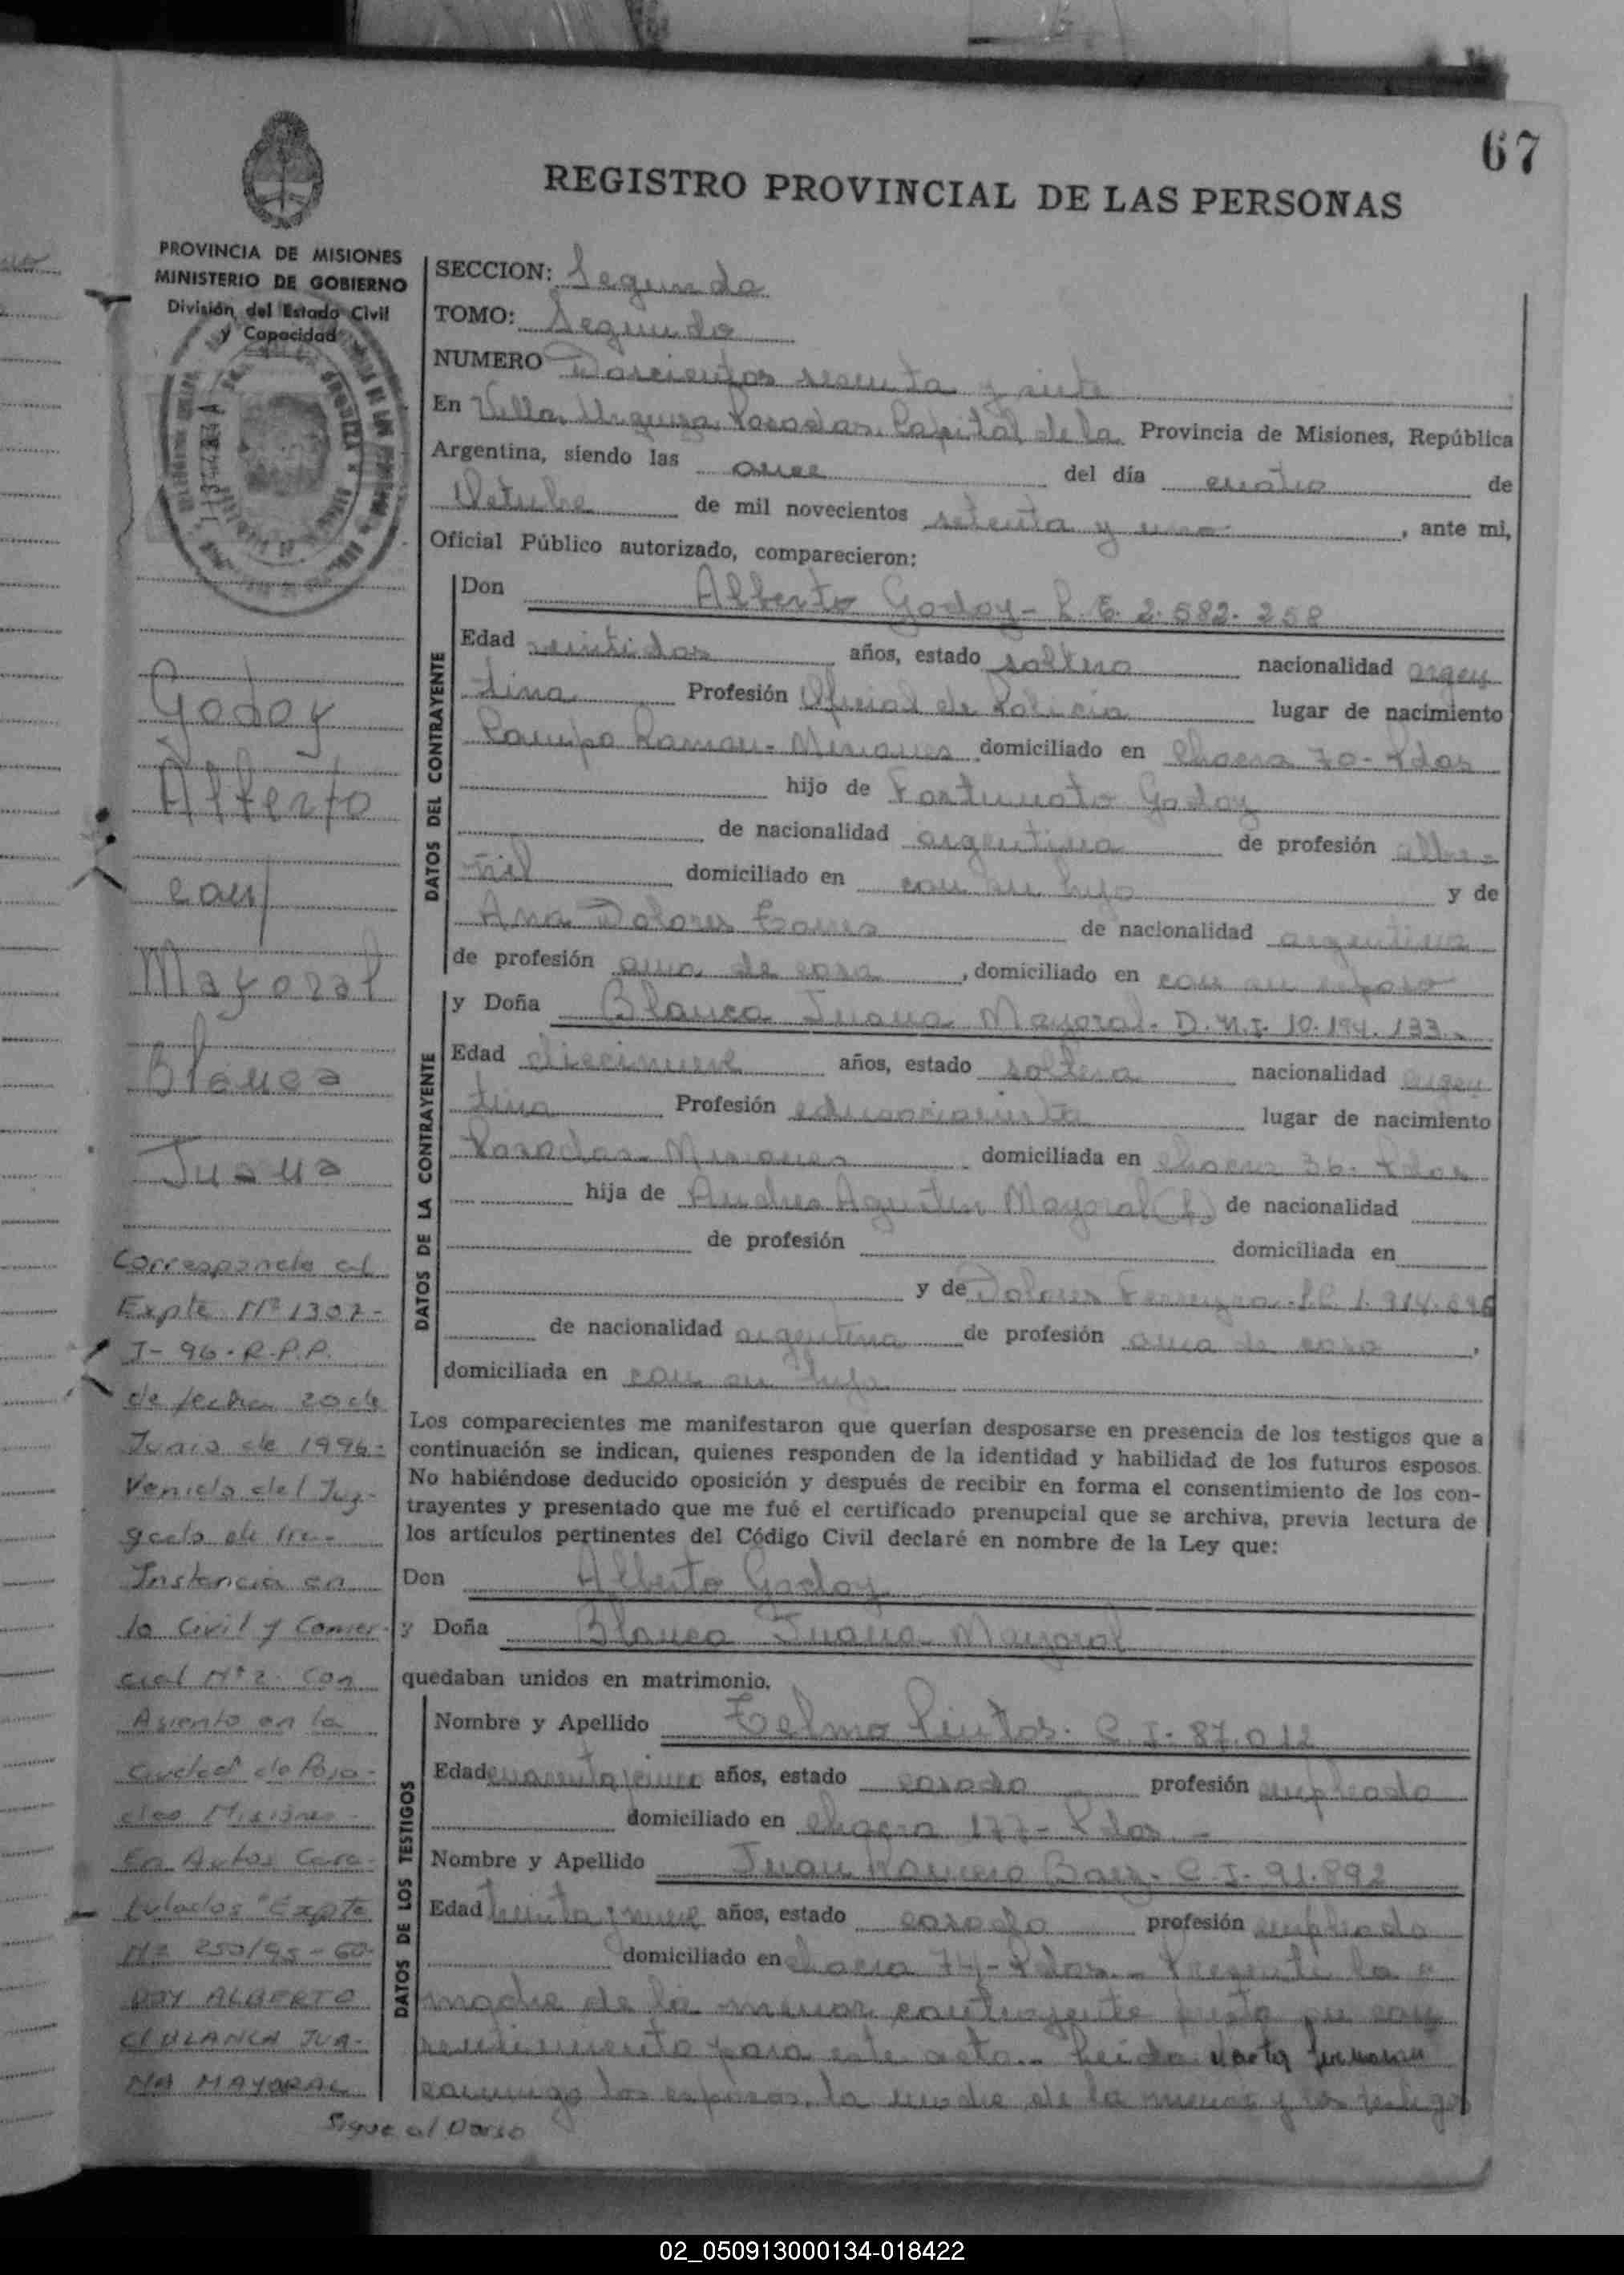 67
REGISTRO PROVINCIAL DE LAS PERSONAS
PROVINCIA DE MISIONES
MINISTERIO DE GOBIERNO
División del Estado Civil
y Capacidad
SECCION: Segunda
TOMO: Segundo
NUMERO Doscientos sesenta y siete
En Villa Urquiza, Posadas, Capital de la Provincia de Misiones, República
Argentina, siendo las once del día cuatro de
Octubre de mil novecientos setenta y uno, ante mi,
Oficial Público autorizado, comparecieron:
DATOS DEL CONTRAYENTE
Don Alberto Godoy - L. E. 2.582.258
Edad veintidos años, estado soltero nacionalidad argen
tina Profesión Oficial de Policia lugar de nacimiento
Campo Ramon - Misiones domiciliado en Chacra 70 - Pdas
hijo de Fortunato Godoy
de nacionalidad argentina de profesión alba-
ñil domiciliado en con su hijo y de
Ana Dolores de nacionalidad argentina
de profesión ama de casa, domiciliado en con su esposo
DATOS DE LA CONTRAYENTE
y Doña Blanca Juana Mayoral - D.N.I. 10.194.133
Edad diecinueve años, estado soltera nacionalidad argen
tina Profesión lugar de nacimiento
Posadas - Misiones domiciliada en Chacra 36 - Pdas
hija de Andres Agustin Mayoral (f) de nacionalidad
de profesión domiciliada en
y de Dolores Ferreyra - L.C. 1.914.896
de nacionalidad argentina de profesión ama de casa,
domiciliada en con su hija
Los comparecientes me manifestaron que querían desposarse en presencia de los testigos que a
continuación se indican, quienes responden de la identidad y habilidad de los futuros esposos.
No habiéndose deducido oposición y después de recibir en forma el consentimiento de los con-
trayentes y presentado que me fué el certificado prenupcial que se archiva, previa lectura de
los artículos pertinentes del Código Civil declaré en nombre de la Ley que:
Don Alberto Godoy
y Doña Blanca Juana Mayoral
quedaban unidos en matrimonio.
DATOS DE LOS TESTIGOS
Nombre y Apellido Telmo Pintos - C. I. 87.012
Edad años, estado casado profesión empleado
domiciliado en Chacra 177 - Pdas -
Nombre y Apellido Juan Romero Baez - C. I. 91.892
Edad treinta y nueve años, estado casado profesión empleado
domiciliado en chacra 74 - Pdas. - Presente la
madre de la menor contrayente presta su con
sentimiento para este acto. - Leida el acta firmaron
conmigo los esposos, la madre de la menor y los testigos
Godoy
Alberto
con
Mayoral
Blanca
Juana
Corresponde al
Expte Nº 1307-
I-96-R.P.P.
de fecha 20 de
Junio de 1996-
Venido del Juz-
gado de 1ra-
Instancia en
lo Civil y Comer-
cial Nº 2 con
Asiento en la
Ciudad de Posa-
das Misiones -
En Autos Cara-
tulados "Expte
Nº 250/95 - GO-
DOY ALBERTO
C/ BLANCA JUA-
NA MAYORAL
Sigue al Dorso
02_050913000134-018422